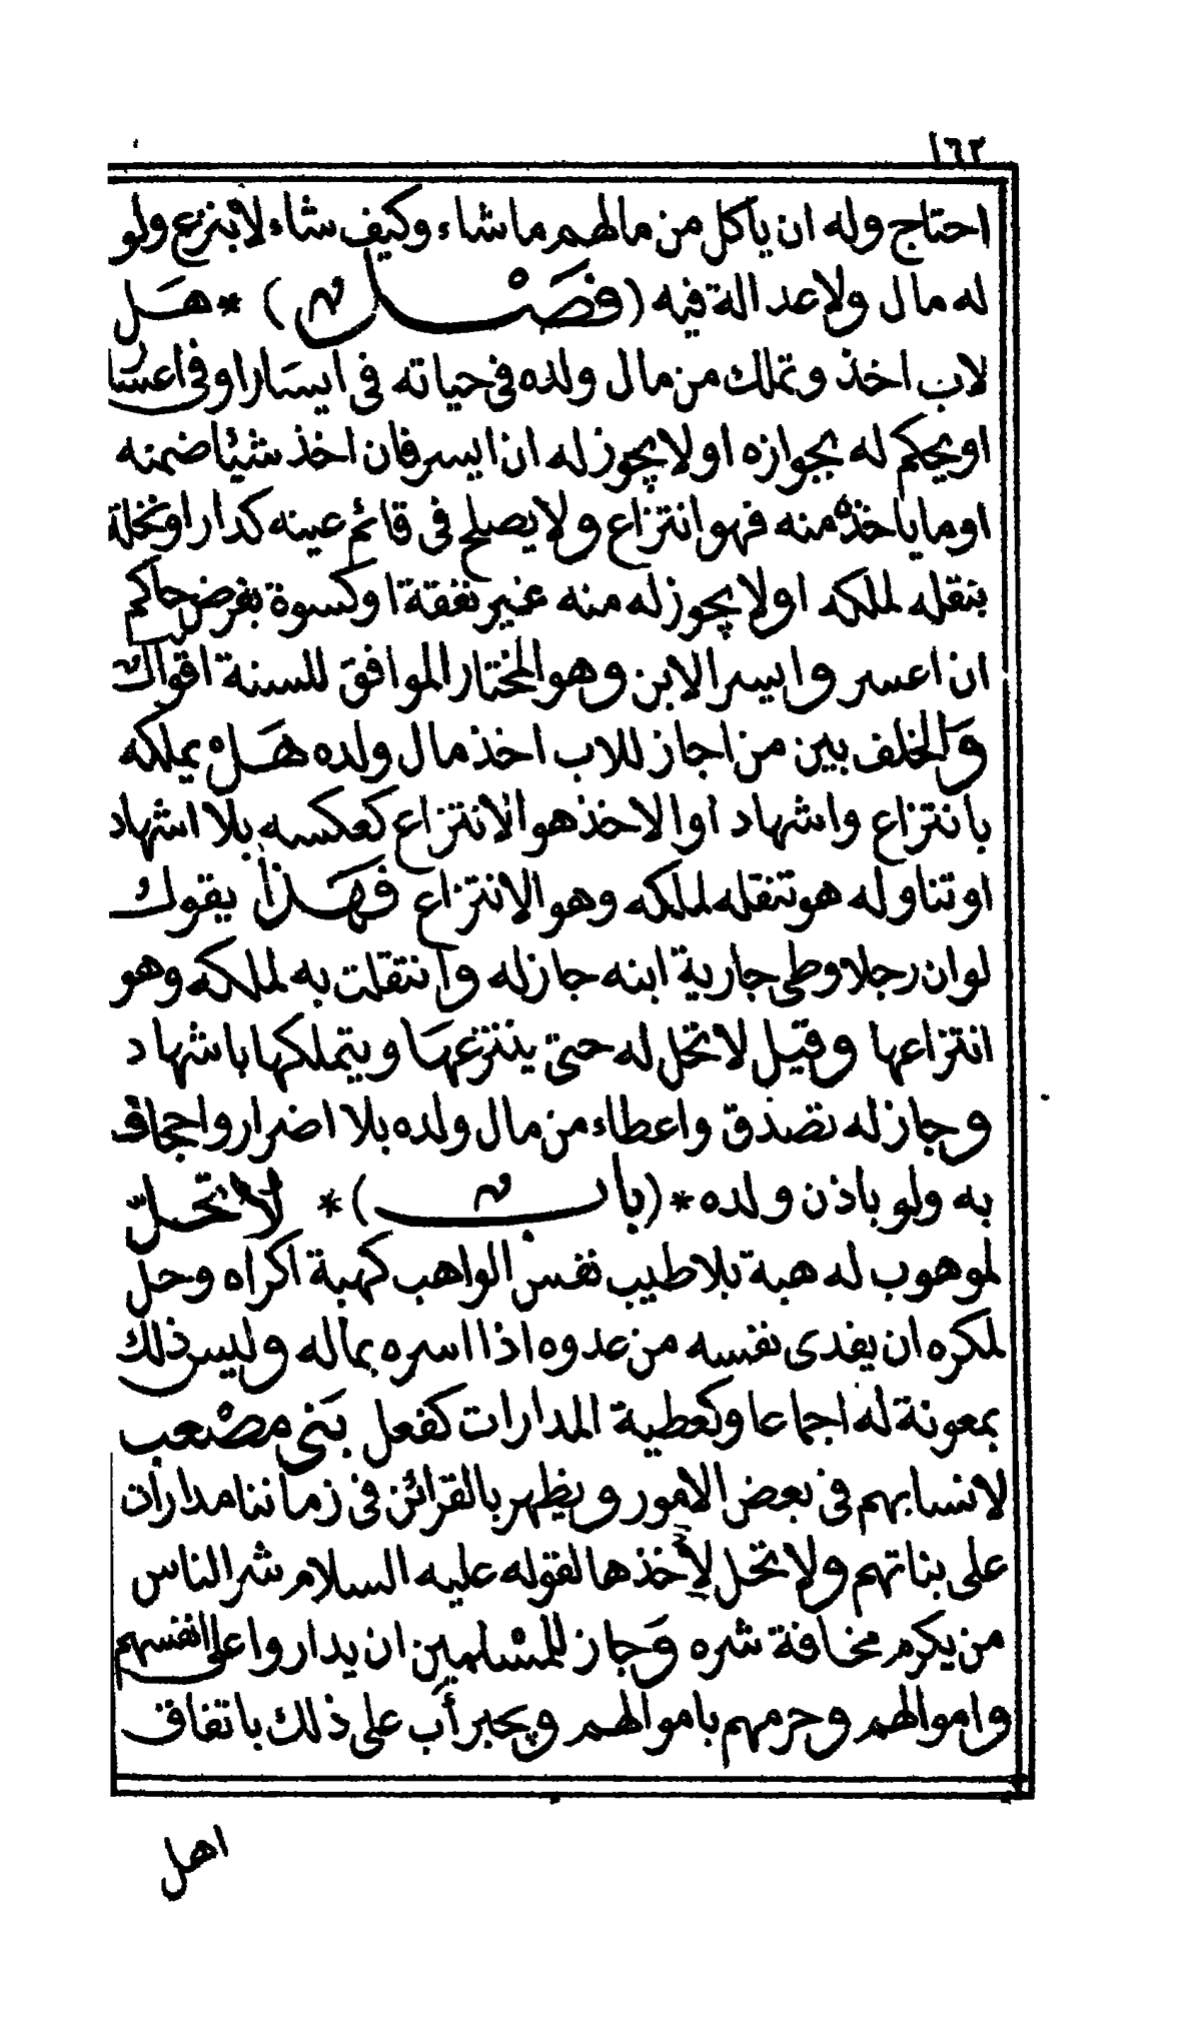 ١٦٢
احتاج وله ان ياكل من مالهم ما شاء وكيف شاء لا بنزع ولو
له مال ولا عدالة فيه (فصل) * هل
لاب اخذ وتملك من مال ولده في حياته في ايسار او في اعسار
او يحكم له بجوازه او لا يجوز له ان ايسر فان اخذ شيئا ضمنه
او ما ياخذه منه فهو انتزاع ولا يصلح في قائم عينه كدار او نخلة
بنقله لملكه او لا يجوز له منه غير نفقة او كسوة بفرض حاكم
ان اعسر وايسر الابن وهو المختار الموافق للسنة اقوال
والخلف بين من اجاز للاب اخذ مال ولده هل يملكه
بانتزاع واشهاد او الاخذ هو الانتزاع كعكسه بلا اشهاد
او تناوله هو تنقله لملكه وهو الانتزاع فهذا يقول
لو ان رجلا وطى جارية ابنه جاز له وانتقلت به لملكه وهو
انتزاعها وقيل لا تحل له حتى ينتزعها ويتملكها باشهاد
وجاز له تصدق واعطاء من مال ولده بلا اضرار واجحاف
به ولو باذن ولده * (باب) * لا تحل
لموهوب له هبة بلا طيب نفس الواهب كهبة اكراه وحل
لمكره ان يفدى نفسه من عدوه اذا اسره بماله وليس ذلك
بمعونة له اجماعا وكعطية المدارات كفعل بنى مصعب
لانسابهم في بعض الامور ويظهر بالقرائن في زماننا مدارات
على بناتهم ولا تحل لآخذها لقوله عليه السلام شر الناس
من يكرم مخافة شره وجاز للمسلمين ان يداروا على انفسهم
واموالهم وحرمهم باموالهم ويجبر أب على ذلك باتفاق
اهل